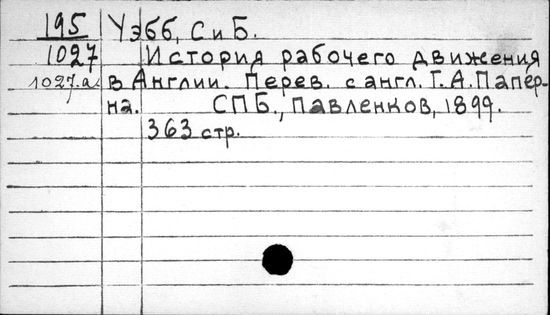 195 Уэбб, С и Б.
1027 История рабочего движения
1027.a. в Англии. Перев. с англ. Г. А. Папер-
на. СПБ., Павленков, 1899.
363 стр.